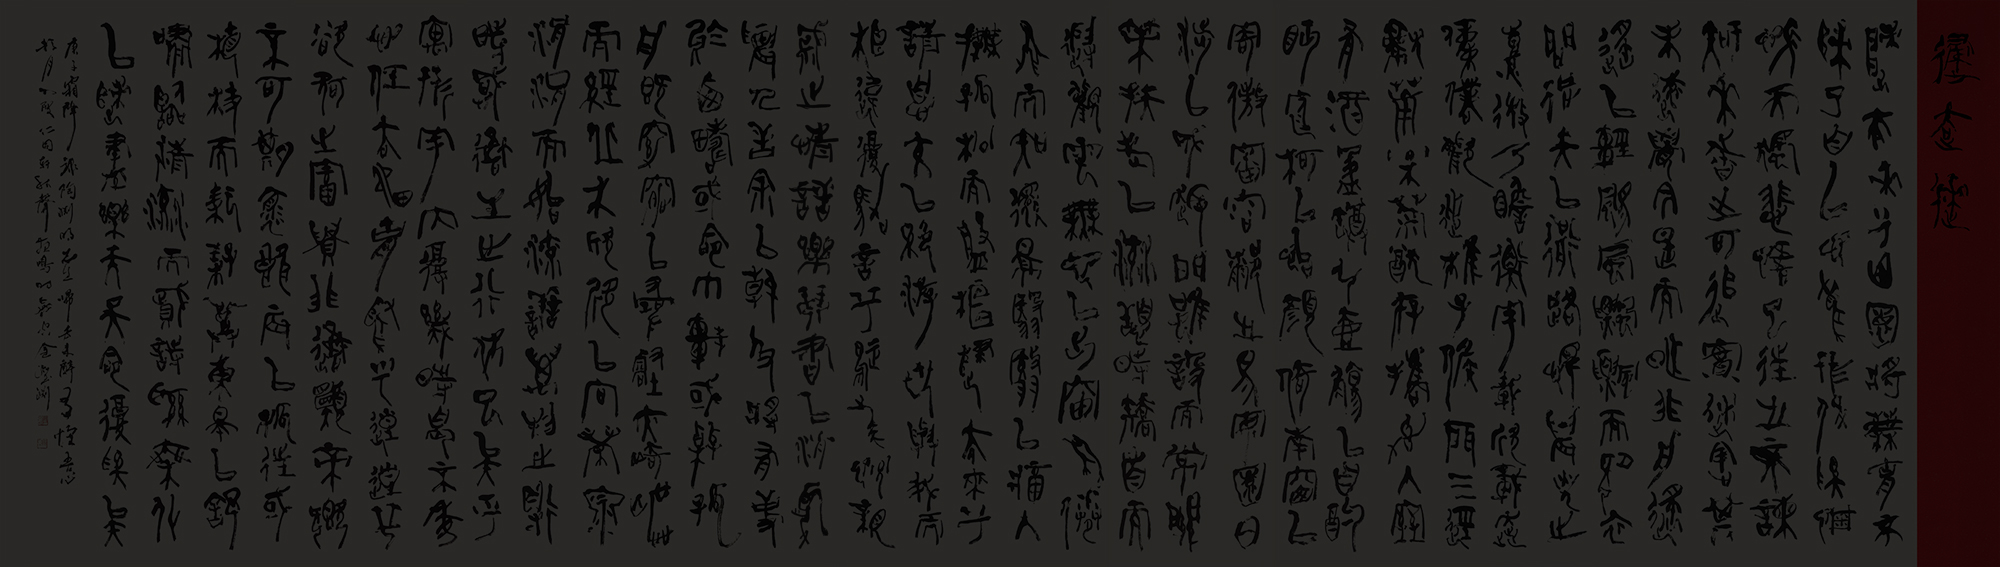 歸去來
歸去來兮田園將蕪胡不
歸既自以心為形役奚惆
悵而獨悲悟已往之不諫
知來者之可追實迷途其
未遠覺今是而昨非舟遙
遙以輕颺風飄飄而吹衣
問征夫以前路恨晨光之
熹微乃瞻衡宇載欣載奔
僮僕歡迎稚子候門三徑
就荒松菊猶存攜幼入室
有酒盈樽引壺觴以自酌
眄庭柯以怡顏倚南窗以
寄傲審容膝之易安園日
涉以成趣門雖設而常關
策扶老以流憩時矯首而
遐觀雲無心以出岫鳥倦
飛而知還景翳翳以將入
撫孤松而盤桓歸去來兮
請息交以絕遊世與我而
相違復駕言兮焉求悅親
戚之情話樂琴書以消憂
農人告余以春及將有事
於西疇或命巾車或棹孤
舟既窈窕以尋壑亦崎嶇
而經丘木欣欣以向榮泉
涓涓而始流善萬物之得
時感吾生之行休已矣乎
寓形宇內復幾時曷不委
心任去留胡為乎遑遑兮
欲何之富貴非吾願帝鄉
不可期懷良辰以孤往或
植杖而耘耔登東皋以舒
嘯臨清流而賦詩聊乘化
以歸盡樂夫天命復奚疑
庚子霜降錄陶淵明先生歸去來辭